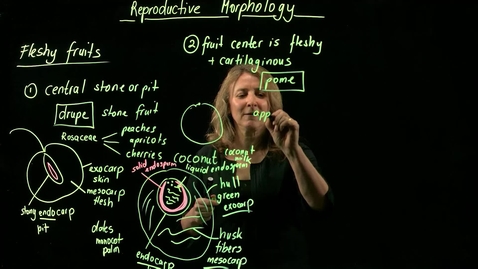 Reproductive Morphology
Fleshy fruits
① central stone or pit
drupe stone fruit
Rosaceae
peaches
apricots
cherries
exocarp
skin
mesocarp
flesh
stony endocarp
pit
dates
monocot
palm
② fruit center is fleshy
+ cartilaginous
pome
app
coconut
coconut
milk
solid
endosperm
liquid endosperm
hull
green
exocarp
husk
fibers
mesocarp
endocarp